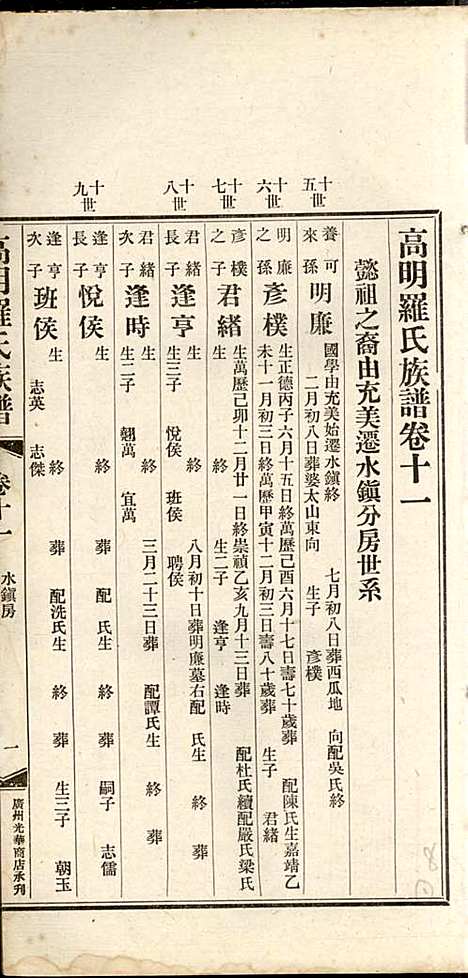 高明羅氏族譜卷十一
懿祖之裔由充美遷水鎭分房世系
十五世
養可來孫
明廉
國學由充美始遷水鎭終 七月初八日葬西瓜地 向配吳氏終
二月初八日葬婆太山東向 生子 彥樸
十六世
明廉之孫
彥樸
生正德丙子六月十五日終萬歷己酉六月十七日壽七十歲葬 配陳氏生嘉靖乙
未十一月初三日終萬歷甲寅十二月初三日壽八十歲葬 生子 君緒
十七世
彥樸之子
君緒
生萬歷己卯十二月廿一日終崇禎乙亥九月十三日葬 配杜氏續配嚴氏梁氏
生二子 逢亨 逢時
十八世
君緒長子
逢亨
生 終 八月初十日葬明廉墓右配 氏生 終 葬
生三子 悅侯 班侯 聘侯
君緒次子
逢時
生 終 三月二十三日葬 配譚氏生 終 葬
生二子 翹萬 宜萬
十九世
逢亨長子
悅侯
生 終 葬 配 氏生 終 葬 嗣子 志儒
逢亨次子
班侯
生 終 葬 配洗氏生 終 葬 生三子 朝玉
志英 志傑
高明羅氏族譜
卷十一
水鎭房
一
廣州光華商店承刋